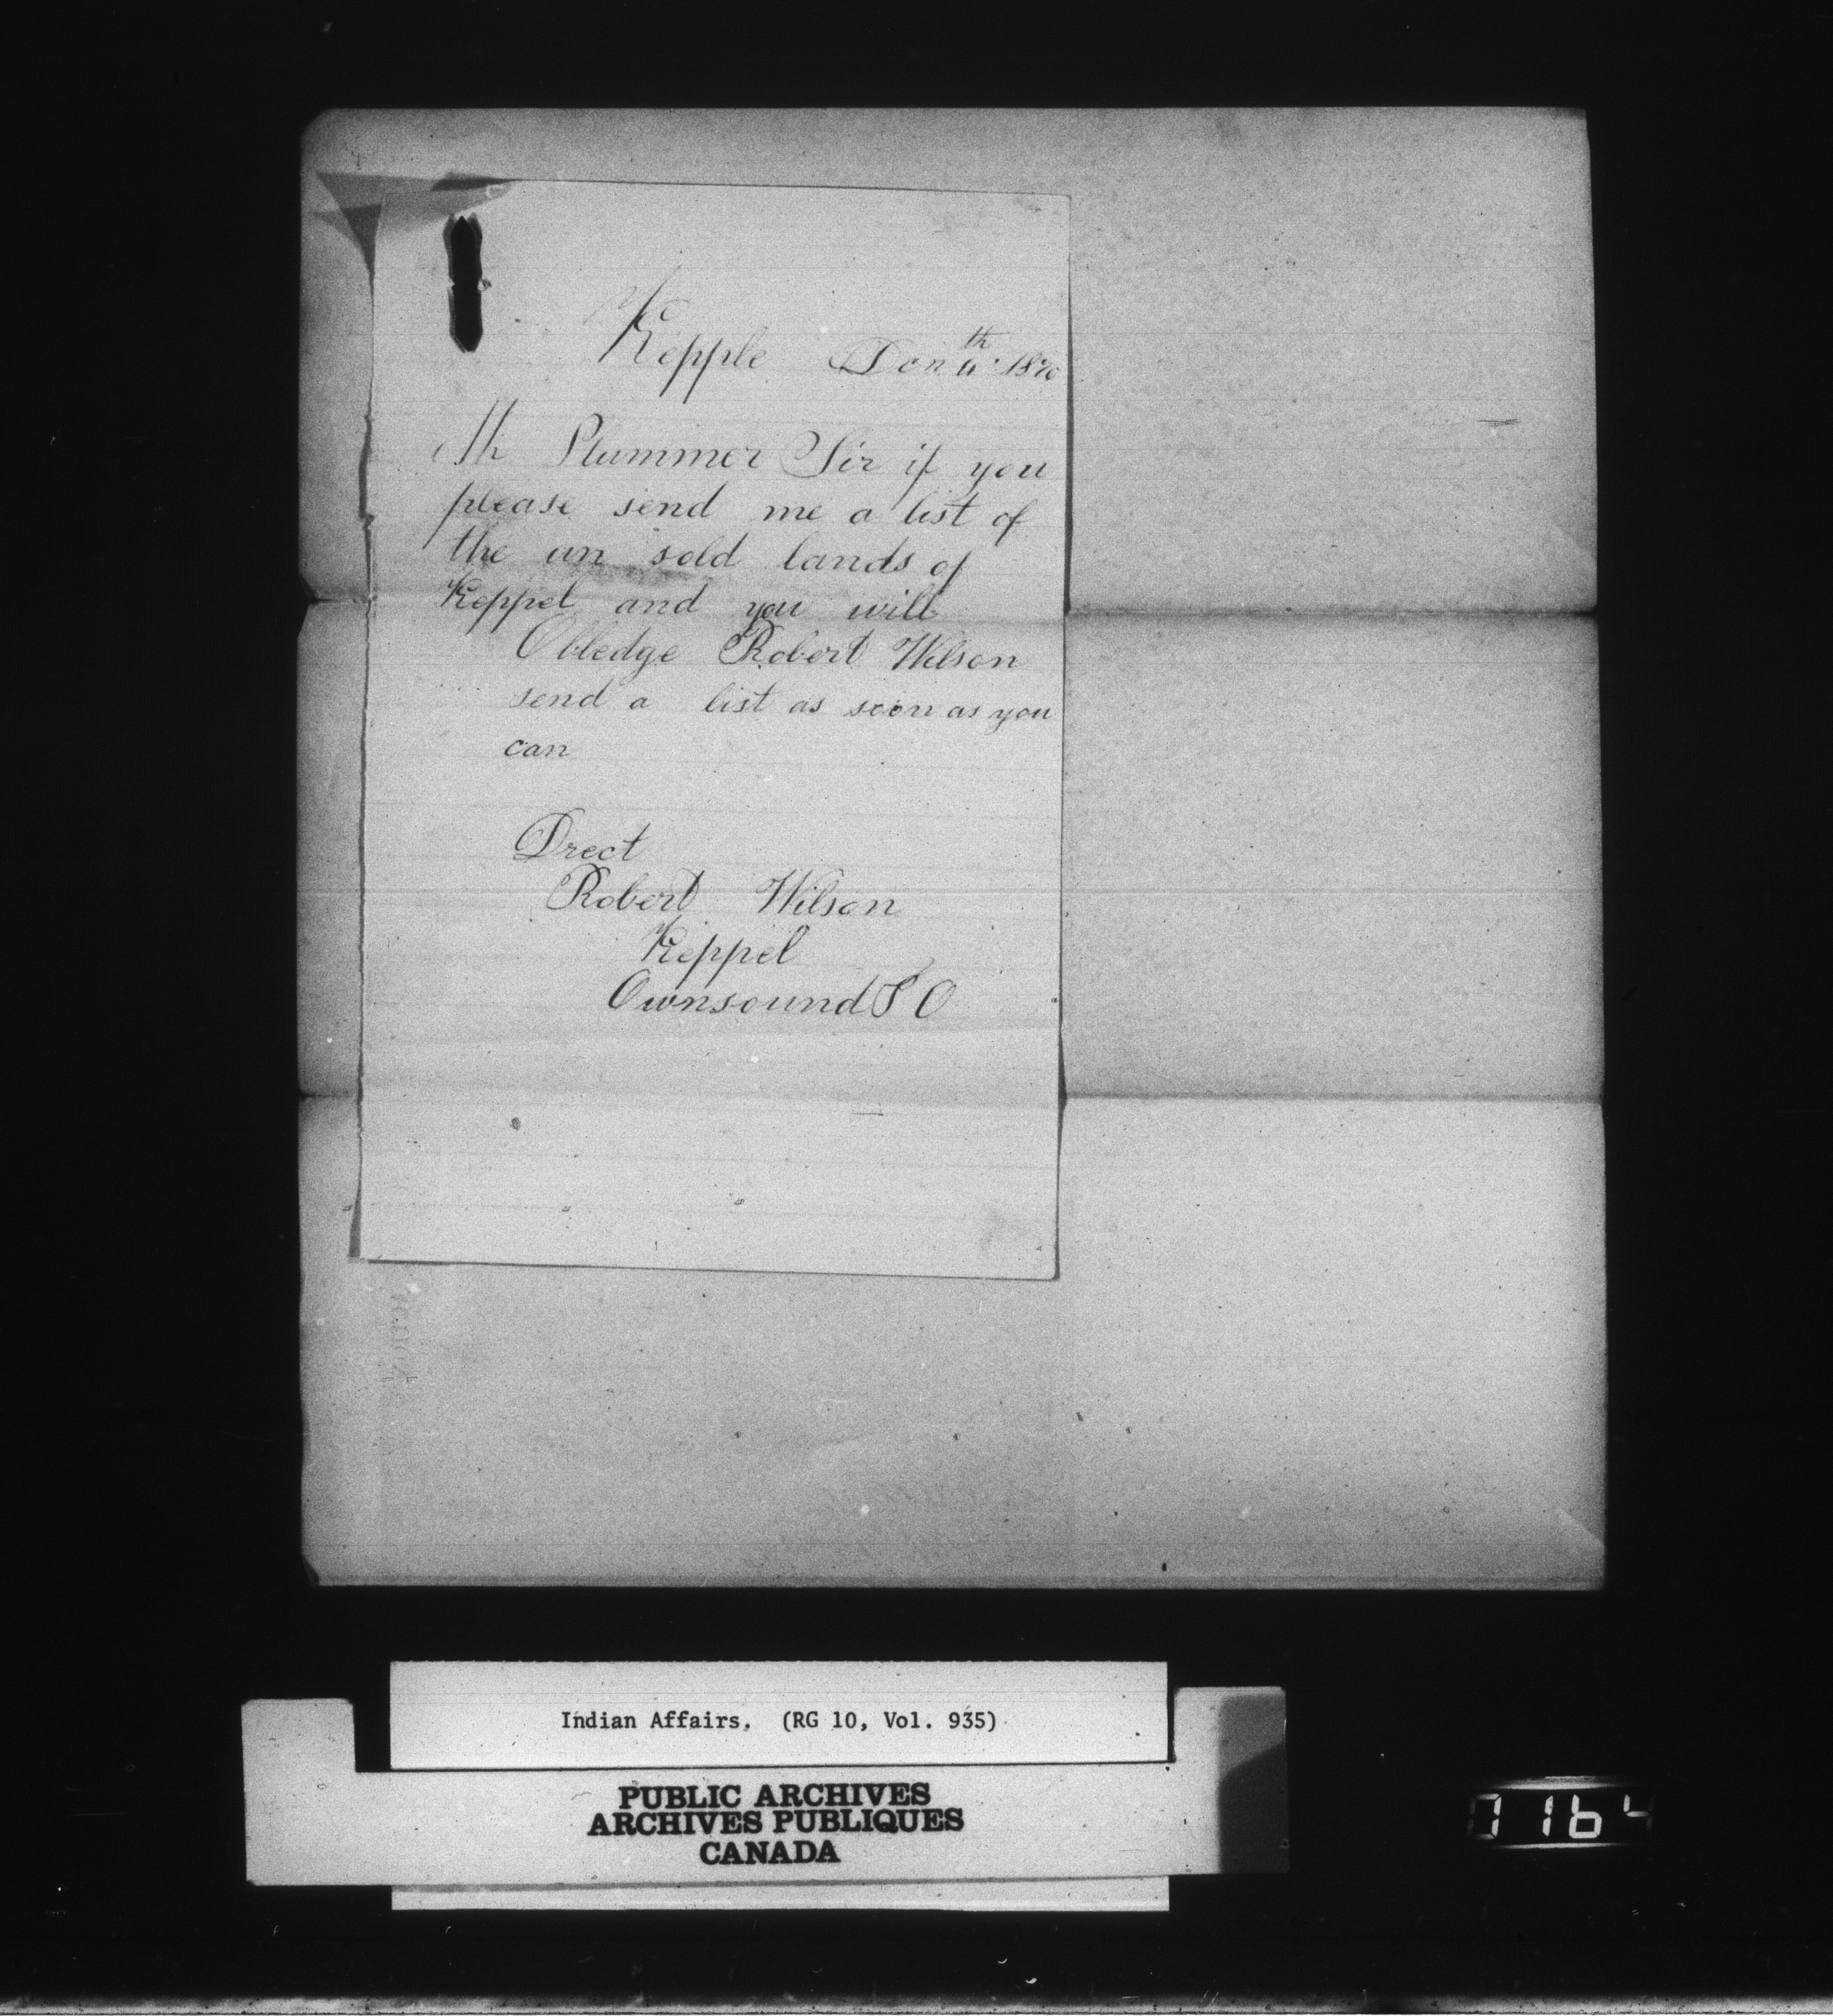 Kepple Jan 4th 1870
Mr Plummer Sir if you
please send me a list of
the un sold lands of
Keppel and you will
Obledge Robert Wilson
send a list as soon as you
can
Drect
Robert Wilson
Keppel
Ownsound P O
Indian Affairs. (RG 10, Vol. 935)
PUBLIC ARCHIVES
ARCHIVES PUBLIQUES
CANADA